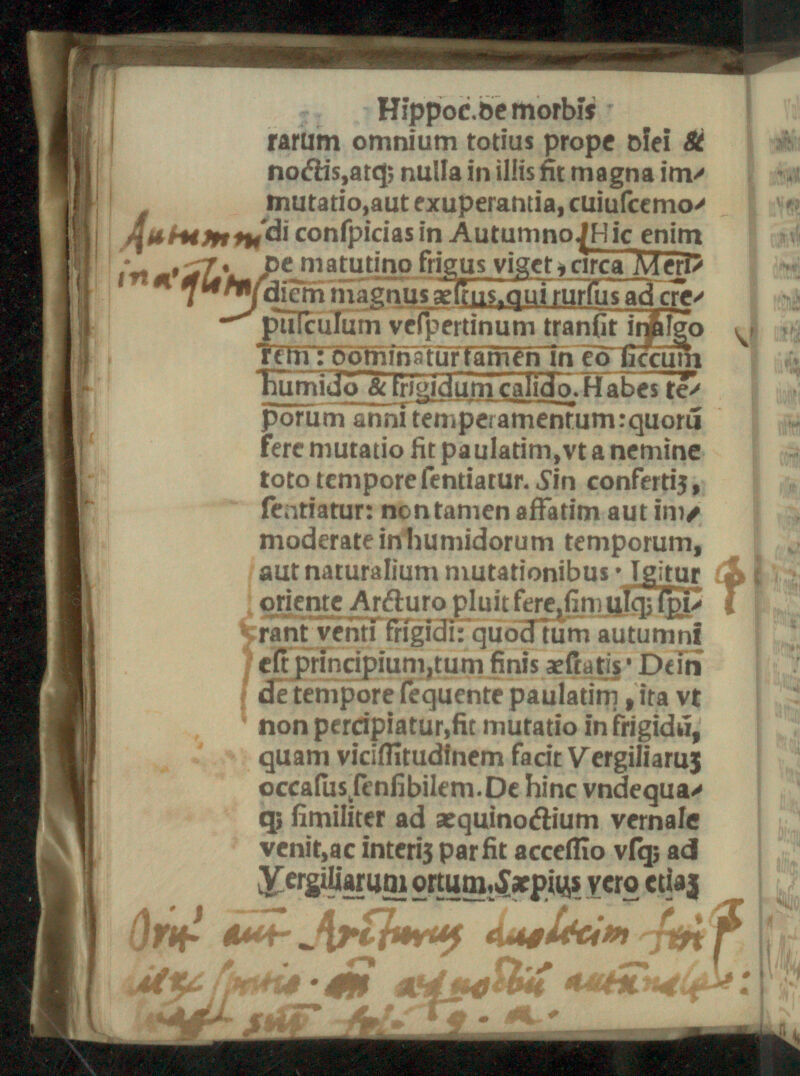 Hippoc.de morbis
rarum omnium totius prope diei &
noctis,atq; nulla in illis fit magna im-
mutatio,aut exuperantia, cuiuscemo-
di conspicias in Autumno. Hic enim
Autumni
inæqli
de matutino frigus viget, circa Meri-
diem magnus æstus,qui rursus ad cre-
pusculum vespertinum transit in algo
rem: dominatur tamen in eo siccum
humido & frigidum calido. Habes tē-
porum anni temperamentum: quorū
fere mutatio fit paulatim,vt a nemine
toto tempore sentiatur. Sin confertiȝ,
sentiatur: non tamen affatim aut im-
moderate in humidorum temporum,
aut naturalium mutationibus. Igitur
oriente Arcturo pluit fere,simulq; spi-
rant venti frigidi: quod tum autumni
est principium,tum finis æstatis. Dein
de tempore sequente paulatim, ita vt
non percipiatur,fit mutatio in frigidū,
quam vicissitudinem facit Vergiliaruȝ
occasus sensibilem. De hinc vndequa-
q; similiter ad æquinoctium vernale
venit,ac interiȝ par fit accessio vsq; ad
Vergiliarum ortum. Sæpius vero etiaȝ
aut Arcturus duodecim
æquoctiū